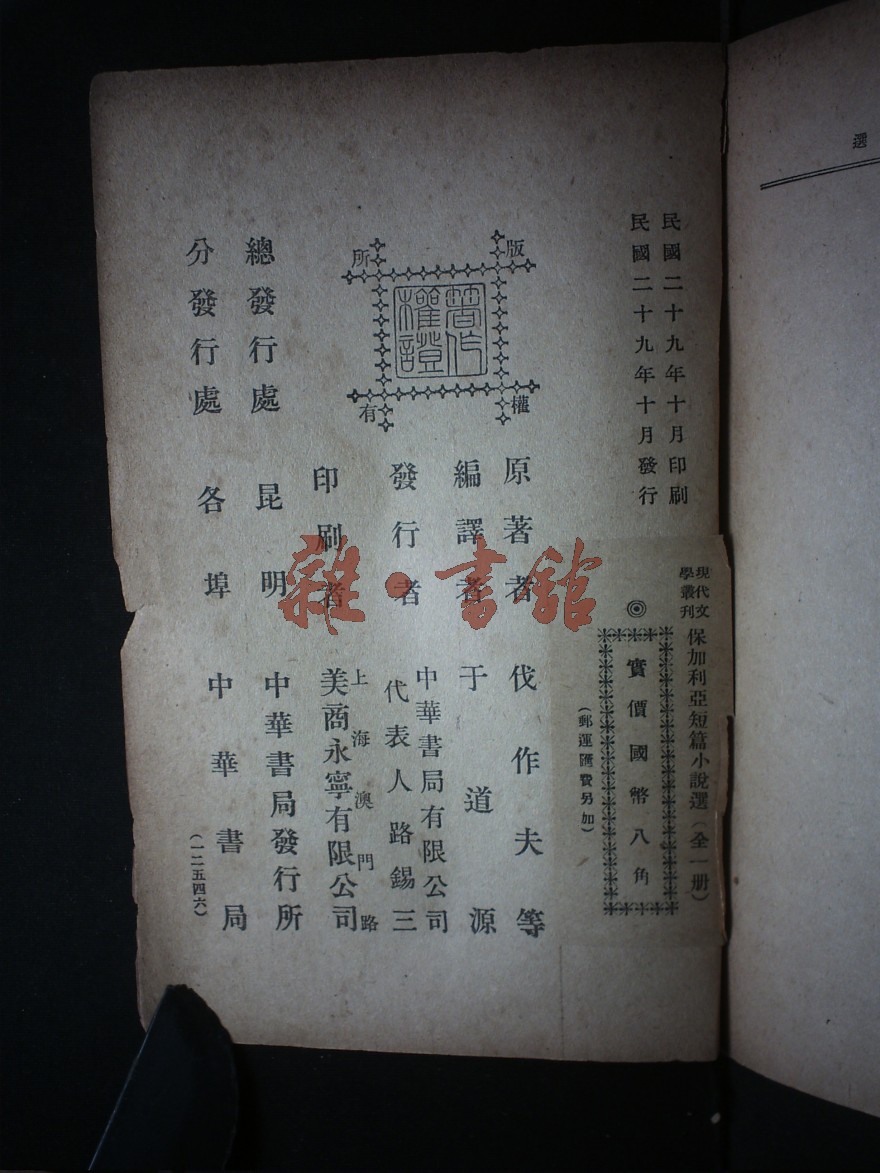 選
民國二十九年十月印刷
民國二十九年十月發行
現代文學叢刊
保加利亞短篇小說選（全一册）
◎
實價國幣八角
（郵運匯費另加）
版權所有
著作權證
原著者 伐作夫等
編譯者 于道源
發行者 中華書局有限公司
代表人路錫三
印刷者 上海澳門路
美商永寧有限公司
總發行處 昆明 中華書局發行所
分發行處 各埠 中華書局
（一二五四六）
雜·書館